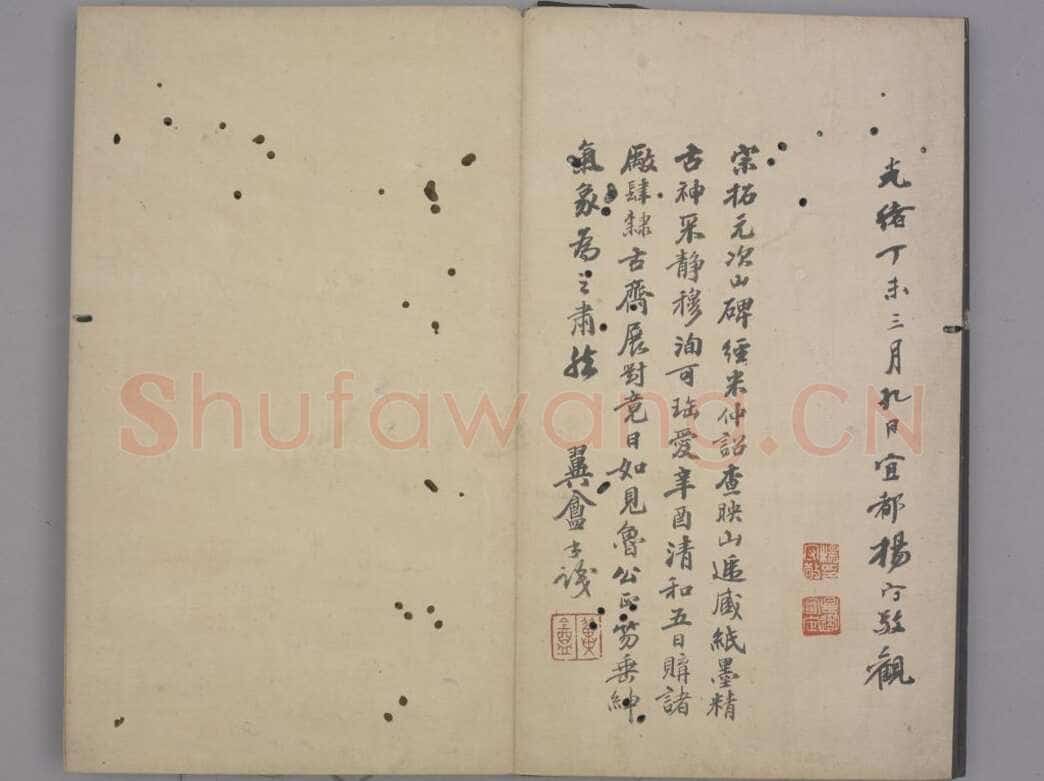 光緒丁未三月九日宜都楊守敬觀
宗拓元次山碑經米仲詔查映山遞藏紙墨精
古神采静穆洵可珎愛辛酉清和五日購諸
廠肆隸古齋展對竟日如見魯公正笏垂紳
氣象為之肅然
翼盦謹識
Shufawang.CN